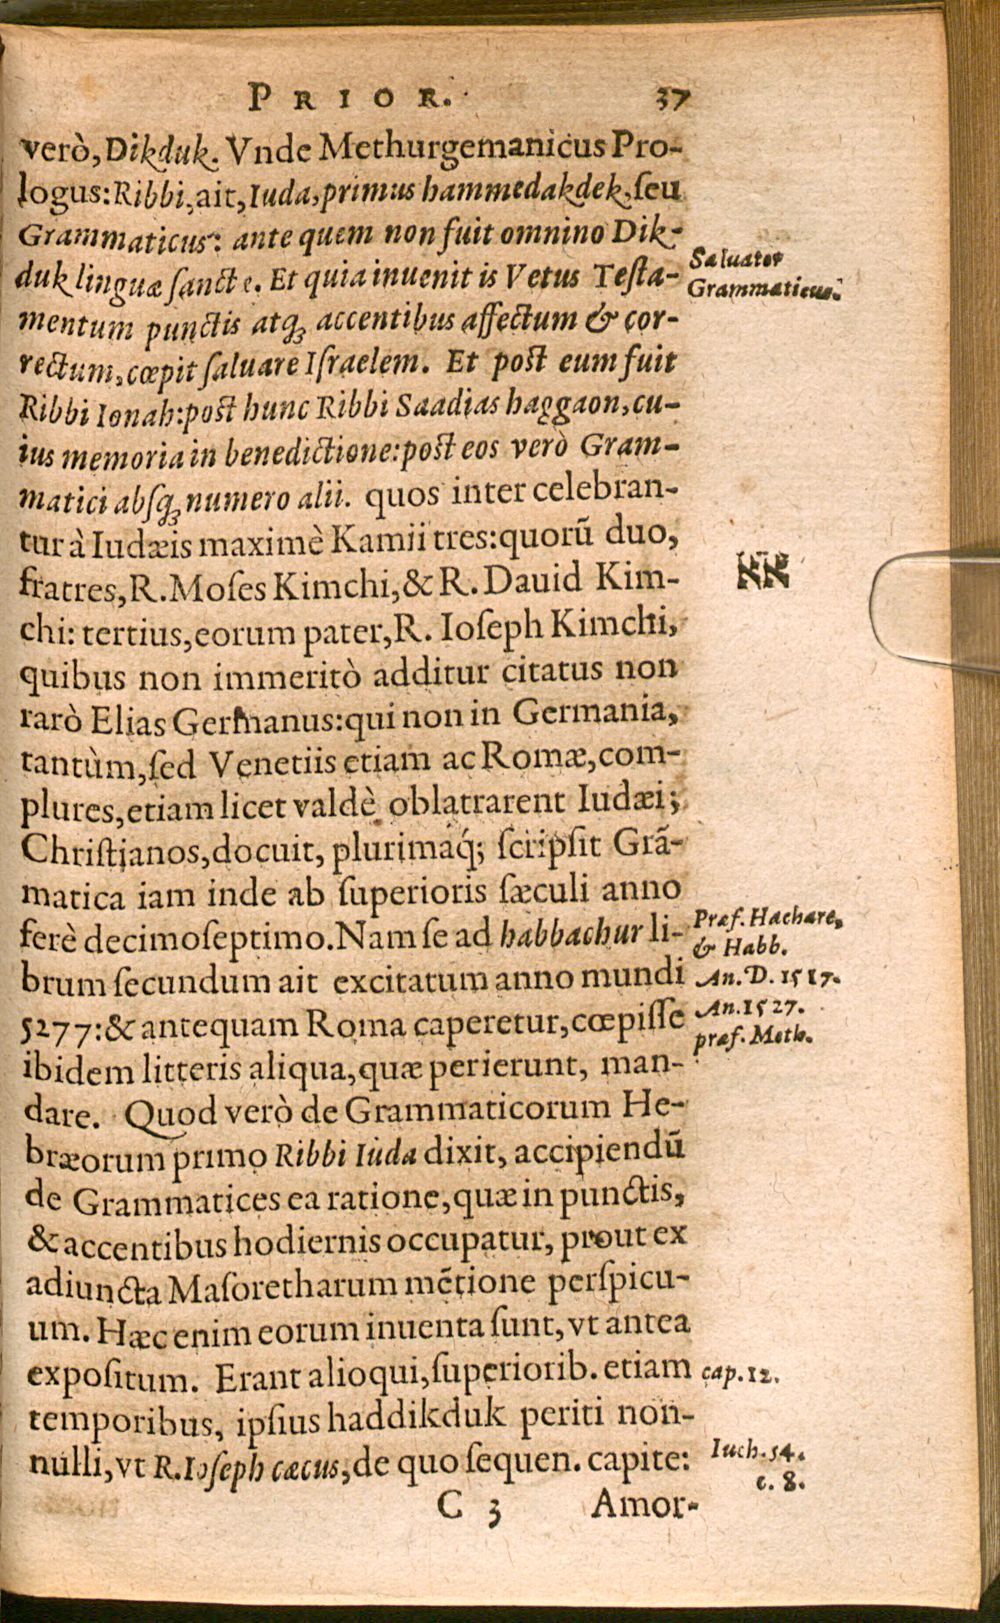 PRIOR. 37
verò, Dikduk. Vnde Methurgemanicus Pro-
logus: Ribbi, ait, Iuda, primus hammedakdek, ſeu
Grammaticus: ante quem non fuit omnino Dik-
duk linguæ ſanctæ. Et quia inuenit is Vetus Teſta-
mentum punctis atq; accentibus affectum & cor-
rectum, cœpit ſaluare Iſraelem. Et poſt eum fuit
Ribbi Ionah: poſt hunc Ribbi Saadias haggaon, cu-
ius memoria in benedictione: poſt eos verò Gram-
matici abſq; numero alii. quos inter celebran-
tur à Iudæis maximè Kamii tres: quorũ duo,
fratres, R. Moſes Kimchi, & R. Dauid Kim-
chi: tertius, eorum pater, R. Ioſeph Kimchi,
quibus non immeritò additur citatus non
rarò Elias Germanus: qui non in Germania,
tantùm, ſed Venetiis etiam ac Romæ, com-
plures, etiam licet valdè oblatrarent Iudæi;
Chriſtianos, docuit, plurimáq́; ſcripſit Grã-
matica iam inde ab ſuperioris ſæculi anno
ferè decimoſeptimo. Nam ſe ad habbachur li-
brum ſecundum ait excitatum anno mundi
5277: & antequam Roma caperetur, cœpiſſe
ibidem litteris aliqua, quæ perierunt, man-
dare. Quod verò de Grammaticorum He-
bræorum primo Ribbi Iuda dixit, accipiendũ
de Grammatices ea ratione, quæ in punctis,
& accentibus hodiernis occupatur, prout ex
adiuncta Maſoretharum mẽtione perſpicu-
um. Hæc enim eorum inuenta ſunt, vt antea
expoſitum. Erant alioqui, ſuperiorib. etiam
temporibus, ipſius haddikduk periti non-
nulli, vt R. Ioſeph cæcus, de quo ſequen. capite:
C 3 Amor-
Saluator
Grammaticus.
אא
Præf. Hachare,
& Habb.
An. D. 1517.
An. 1527.
præf. Meth.
cap. 12.
Iuch. 54.
c. 8.